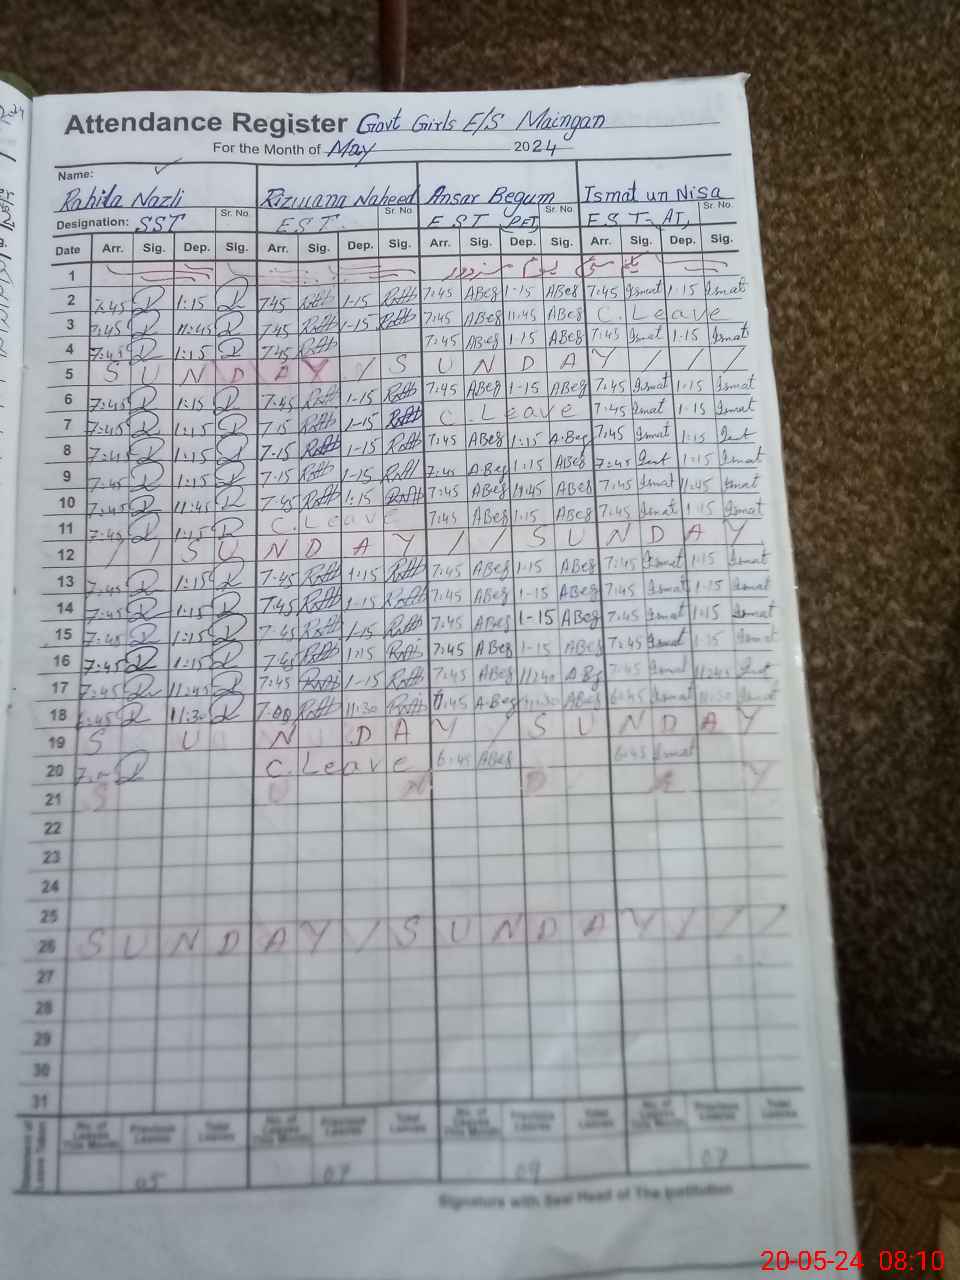 Attendance Register Govt Girls E/S Maingan
For the Month of May 2024
Name:
Rahila Nazli Rizwana Naheed Ansar Begum Ismat un Nisa
Designation: SST Sr. No. EST. Sr. No. EST (PET) Sr. No. EST-AI, Sr. No.
Date Arr. Sig. Dep. Sig. Arr. Sig. Dep. Sig. Arr. Sig. Dep. Sig. Arr. Sig. Dep. Sig.
1
2 7:45 1:15 7:45 1-15 7:45 ABeg 1-15 ABeg 7:45 Ismat 1:15 Ismat
3 7:45 11:45 7:45 1-15 7:45 ABeg 11:45 ABeg C. Leave
4 7:45 1:15 7:45 7:45 ABeg 1-15 ABeg 7:45 Ismat 1:15 Ismat
5 S U N D A Y / S U N D A Y / / /
6 7:45 1:15 7:45 1-15 7:45 ABeg 1-15 ABeg 7:45 Ismat 1-15 Ismat
7 7:45 1:15 7:15 1-15 C. Leave 7:45 Ismat 1-15 Ismat
8 7:45 1:15 7-15 1-15 7:45 ABeg 1:15 A.Beg 7:45 Ismat 1:15
9 7:45 1:15 7-15 1-15 7:45 A.Beg 1:15 ABeg 7:45 1:15 Ismat
10 7:45 11:45 7-45 1:15 7:45 ABeg 11:45 ABeg 7:45 Ismat 11:45 Ismat
11 7:45 1:15 C. Leave 7:45 ABeg 1:15 ABeg 7:45 Ismat 1:15 Ismat
12 / / S U N D A Y / / S U N D A Y
13 7:45 1:15 7-45 1:15 7:45 ABeg 1-15 ABeg 7:45 Ismat 1-15 Ismat
14 7:45 1:15 7:45 1-15 7:45 ABeg 1-15 ABeg 7:45 Ismat 1-15 Ismat
15 7:45 1:15 7-45 1-15 7:45 ABeg 1-15 ABeg 7:45 Ismat 1:15 Ismat
16 7:45 1:15 7:45 1:15 7:45 ABeg 1-15 ABeg 7:45 Ismat 1:15 Ismat
17 7:45 11:45 7:45 1-15 7:45 ABeg 11:40 ABeg 7:45 Ismat 11:45
18 11:30 7:00 11:30 ABeg 11:30 ABeg 6:45 Ismat 11:30 Ismat
19 S U N D A Y / S U N D A Y
20 C. Leave 6:45 ABeg 6:45 Ismat
21 S U N D A Y
22
23
24
25
26 S U N D A Y / S U N D A Y / / /
27
28
29
30
31
No. of Leaves This Month Previous Leaves Total Leaves No. of Leaves This Month Previous Leaves Total Leaves No. of Leaves This Month Previous Leaves Total Leaves No. of Leaves This Month Previous Leaves Total Leaves
05 07 09 07
Signature with Seal Head of The Institution
20-05-24 08:10